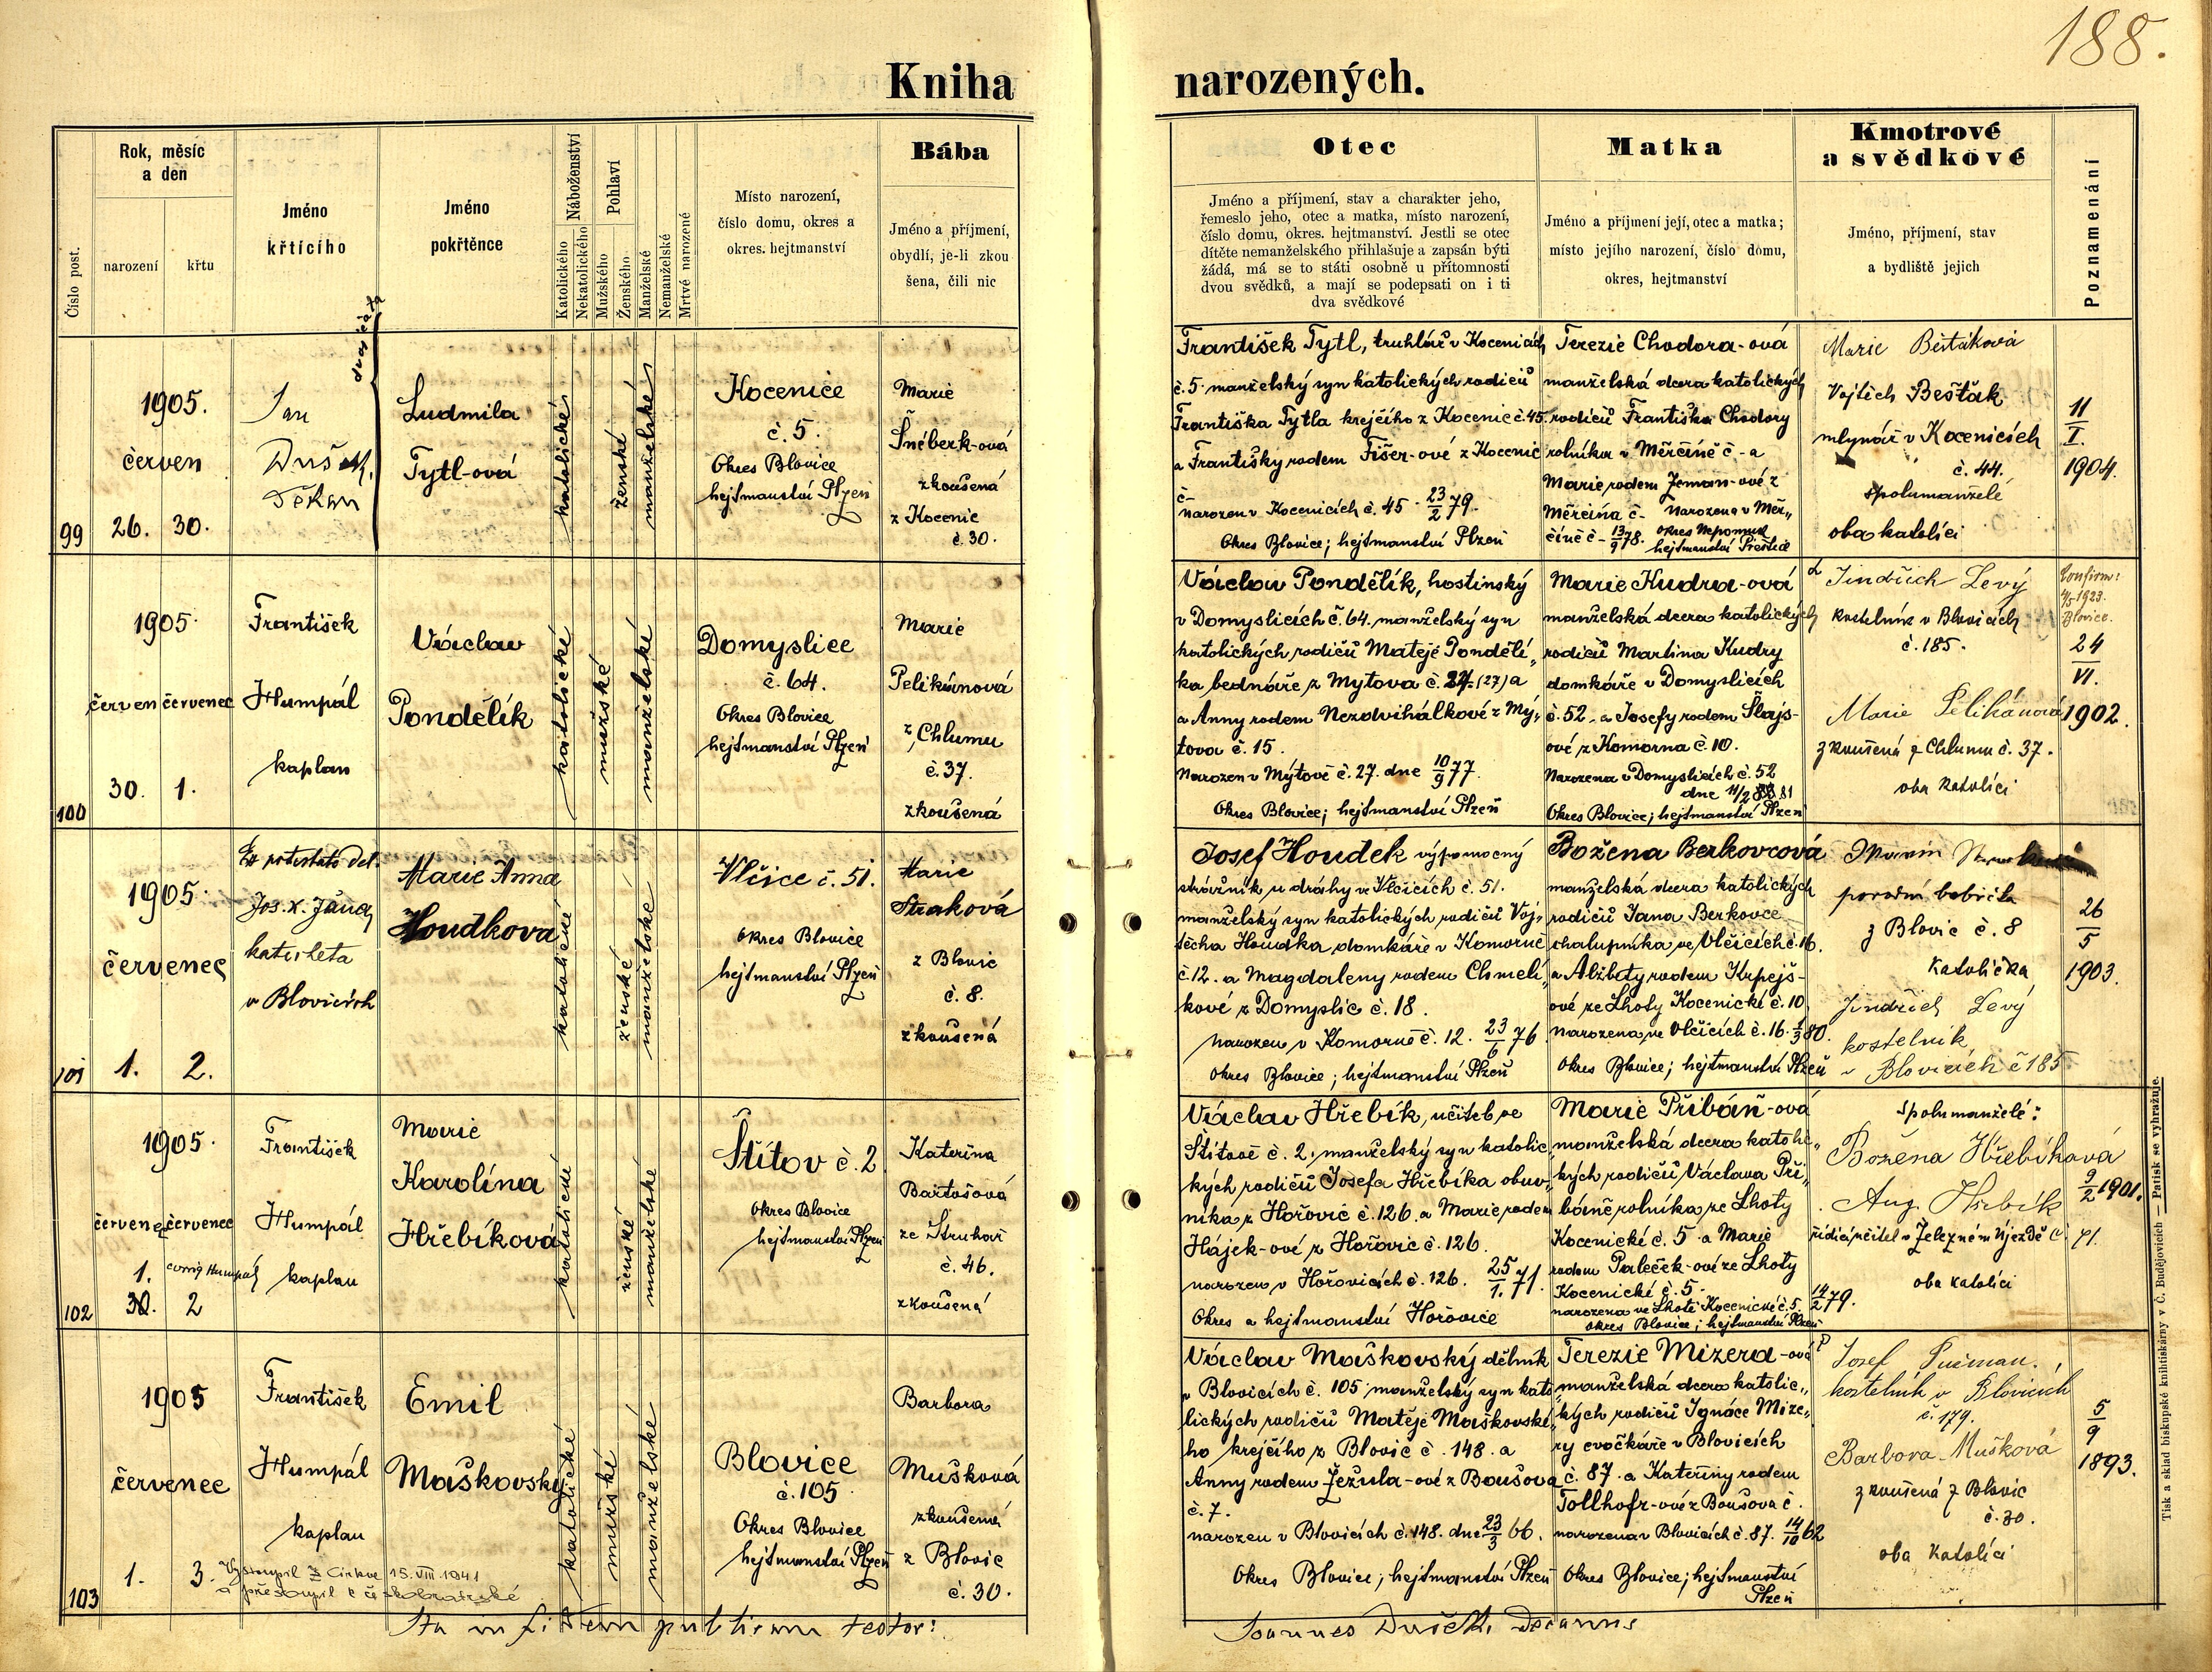 188.
Kniha narozených.
Číslo post.
Rok, měsíc
a deň
narození
křtu
Jméno
křtícího
Jméno
pokřtěnce
Náboženství
Katolického
Nekatolického
Pohlaví
Mužského
Ženského
Manželské
Nemanželské
Mrtvé narozené
Místo narození,
číslo domu, okres a
okres. hejtmanství
Bába
Jméno a příjmení,
obydlí, je-li zkou
šena, čili nic
Otec
Jméno a příjmení, stav a charakter jeho,
řemeslo jeho, otec a matka, místo narození,
číslo domu, okres. hejtmanství. Jestli se otec
dítěte nemanželského přihlašuje a zapsán býti
žádá, má se to státi osobně u přítomnosti
dvou svědků, a mají se podepsati on i ti
dva svědkové
Matka
Jméno a příjmení její, otec a matka;
místo jejího narození, číslo domu,
okres, hejtmanství
Kmotrové
a svědkové
Jméno, příjmení, stav
a bydliště jejich
Poznamenání
99
1905.
červen
26. 30.
Jan
Dušek,
Děkan
Ludmila
Tytl-ová
katolické
ženské
manželské
Kocenice
č. 5.
Okres Blovice
hejtmanství Plzeň
Marie
Šneberk-ová
zkoušená
z Kocenic
č. 30.
František Tytl, truhlář v Kocenicích
č. 5 manželský syn katolických rodičů
Františka Tytla krejčího z Kocenic č. 45.
a Františky rodem Fišer-ové z Kocenic
č.-
narozen v Kocenicích č. 45 23/2 79.
Okres Blovice; hejtmanství Plzeň
Terezie Chodora-ová
manželská dcera katolických
rodičů Františka Chodory
rolníka v Měrčíně č - a
Marie rodem Zeman-ové z
Měrčína č- Narozena v Měr„
číně č - 13/9 78. okres Nepomuk
hejtmanství Přeštice
Marie Bešťáková
Vojtěch Bešťák
mlynář v Kocenicích
č. 44.
spolumanželé
oba katolíci
11/I.
1904.
100
1905.
červen červenec
30. 1.
František
Humpál
kaplan
Václav
Pondělík
katolické
mužské
manželské
Domyslice
č. 64.
Okres Blovice
hejtmanství Plzeň
Marie
Pelikánová
z Chlumu
č. 37.
zkoušená
Václav Pondělík, hostinský
v Domyslicích č. 64. manželský syn
katolických rodičů Matěje Pondělí„
ka bednáře z Mytova č. 27. (27) a
a Anny rodem Nezdvihálkové z Mý„
tova č. 15.
Narozen v Mýtově č. 27. dne 10/9 77.
Okres Blovice; hejtmanství Plzeň
Marie Kudra-ová
manželská dcera katolických
rodičů Martina Kudry
domkáře v Domyslicích
č. 52. a Josefy rodem Šlajs-
ové z Komorna č. 10.
Narozena v Domyslicích č. 52
dne 11/2 81
Okres Blovice; hejtmanství Plzeň
Jindřich Levý
kostelník v Blovicích
č. 185.
Marie Pelikánová
zkoušená z Chlumu č. 37.
oba katolíci
Konfirm:
4/5 1923.
Blovice.
24
VI.
1902.
101
1905.
červenec
1. 2.
Ex potestate del.
Jos.
katecheta
v Blovicích
Marie Anna
Houdkova
katolické
ženské
manželské
Vlčice č. 51.
Okres Blovice
hejtmanství Plzeň
Marie
Straková
z Blovic
č. 8.
zkoušená
Josef Houdek výpomocný
strážník u dráhy ve Vlčicích č. 51.
manželský syn katolických rodičů Voj„
těcha Houdka domkáře v Komorně
č. 12. a Magdaleny rodem Chmelí„
kové z Domyslic č. 18.
narozen v Komorně č. 12. 23/6 76
Okres Blovice; hejtmanství Plzeň
Božena Berkovcová
manželská dcera katolických
rodičů Jana Berkovce
chalupníka ve Vlčicích č. 16.
a Alžběty rodem Krpejš-
ové ze Lhoty Kocenické č. 10
narozena ve Vlčicích č. 16. 1/3 80.
Okres Blovice; hejtmanství Plzeň
porodní babička
z Blovic č. 8
katolička
Jindřich Levý
kostelník
v Blovicích č 185
26/5
1903.
102
1905.
červenec červenec
1.
30. 2
corrig Humpál
František
Humpál
kaplan
Marie
Karolína
Hřebíková
katolické
ženské
manželské
Štítov č. 2
Okres Blovice
hejtmanství Plzeň
Kateřina
Bartošová
ze Struhař
č. 46.
zkoušená
Václav Hřebík, učitel ve
Štítově č. 2. manželský syn katolic„
kých rodičů Josefa Hřebíka obuv„
níka z Hořovic č. 126. a Marie rodem
Hájek-ové z Hořovic č. 126.
narozen v Hořovicích č. 126. 25/1. 71.
Okres a hejtmanství Hořovice
Marie Přibáň-ová
manželská dcera katolic„
kých rodičů Václava Při„
báně rolníka ze Lhoty
Kocenické č. 5 a Marie
rodem Paleček-ové ze Lhoty
Kocenické č. 5.
narozena ve Lhotě Kocenické č. 5. 14/2 79.
okres Blovice; hejtmanství Plzeň
Spolumanželé:
Božena Hřebíková
Aug. Hřebík
řídící učitel v Železném Újezdě č. 71.
oba katolíci
9/2 1901.
103
1905
červenec
1. 3.
František
Humpál
kaplan
Vystoupil z Církve 15.VIII 1941
a přestoupil k českobratrské
Emil
Maškovský
katolické
mužské
manželské
Blovice
č. 105
Okres Blovice
hejtmanství Plzeň
Barbora
Mušková
zkoušená
z Blovic
č. 30.
Václav Maškovský dělník
v Blovicích č. 105 manželský syn kato„
lických rodičů Matěje Maškovské„
ho krejčího z Blovic č. 148. a
Anny rodem Žežula-ové z Boušova
č. 7.
narozen v Blovicích č. 148. dne 23/3 66.
Okres Blovice; hejtmanství Plzeň
Terezie Mizera-ová
manželská dcera katolic„
kých rodičů Ignáce Mize„
ry cvočkáře v Blovicích
č. 87. a Kateřiny rodem
Tollhofr-ové z Boušova č.
narozena v Blovicích č. 87. 14/10 62
Okres Blovice; hejtmanství
Plzeň
Josef
kostelník v Blovicích
č. 179.
Barbora Mušková
zkoušená z Blovic
č. 30.
oba katolíci
5/9
1893.
Ita in fidem publicam testor: Joannes Dušek, decanus
Tisk a sklad biskupské knihtiskárny v Č. Budějovicích — Patisk se vyhražuje.